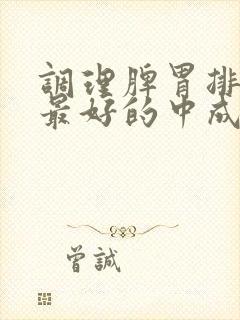 調理脾胃排
最好的中成
曾誠